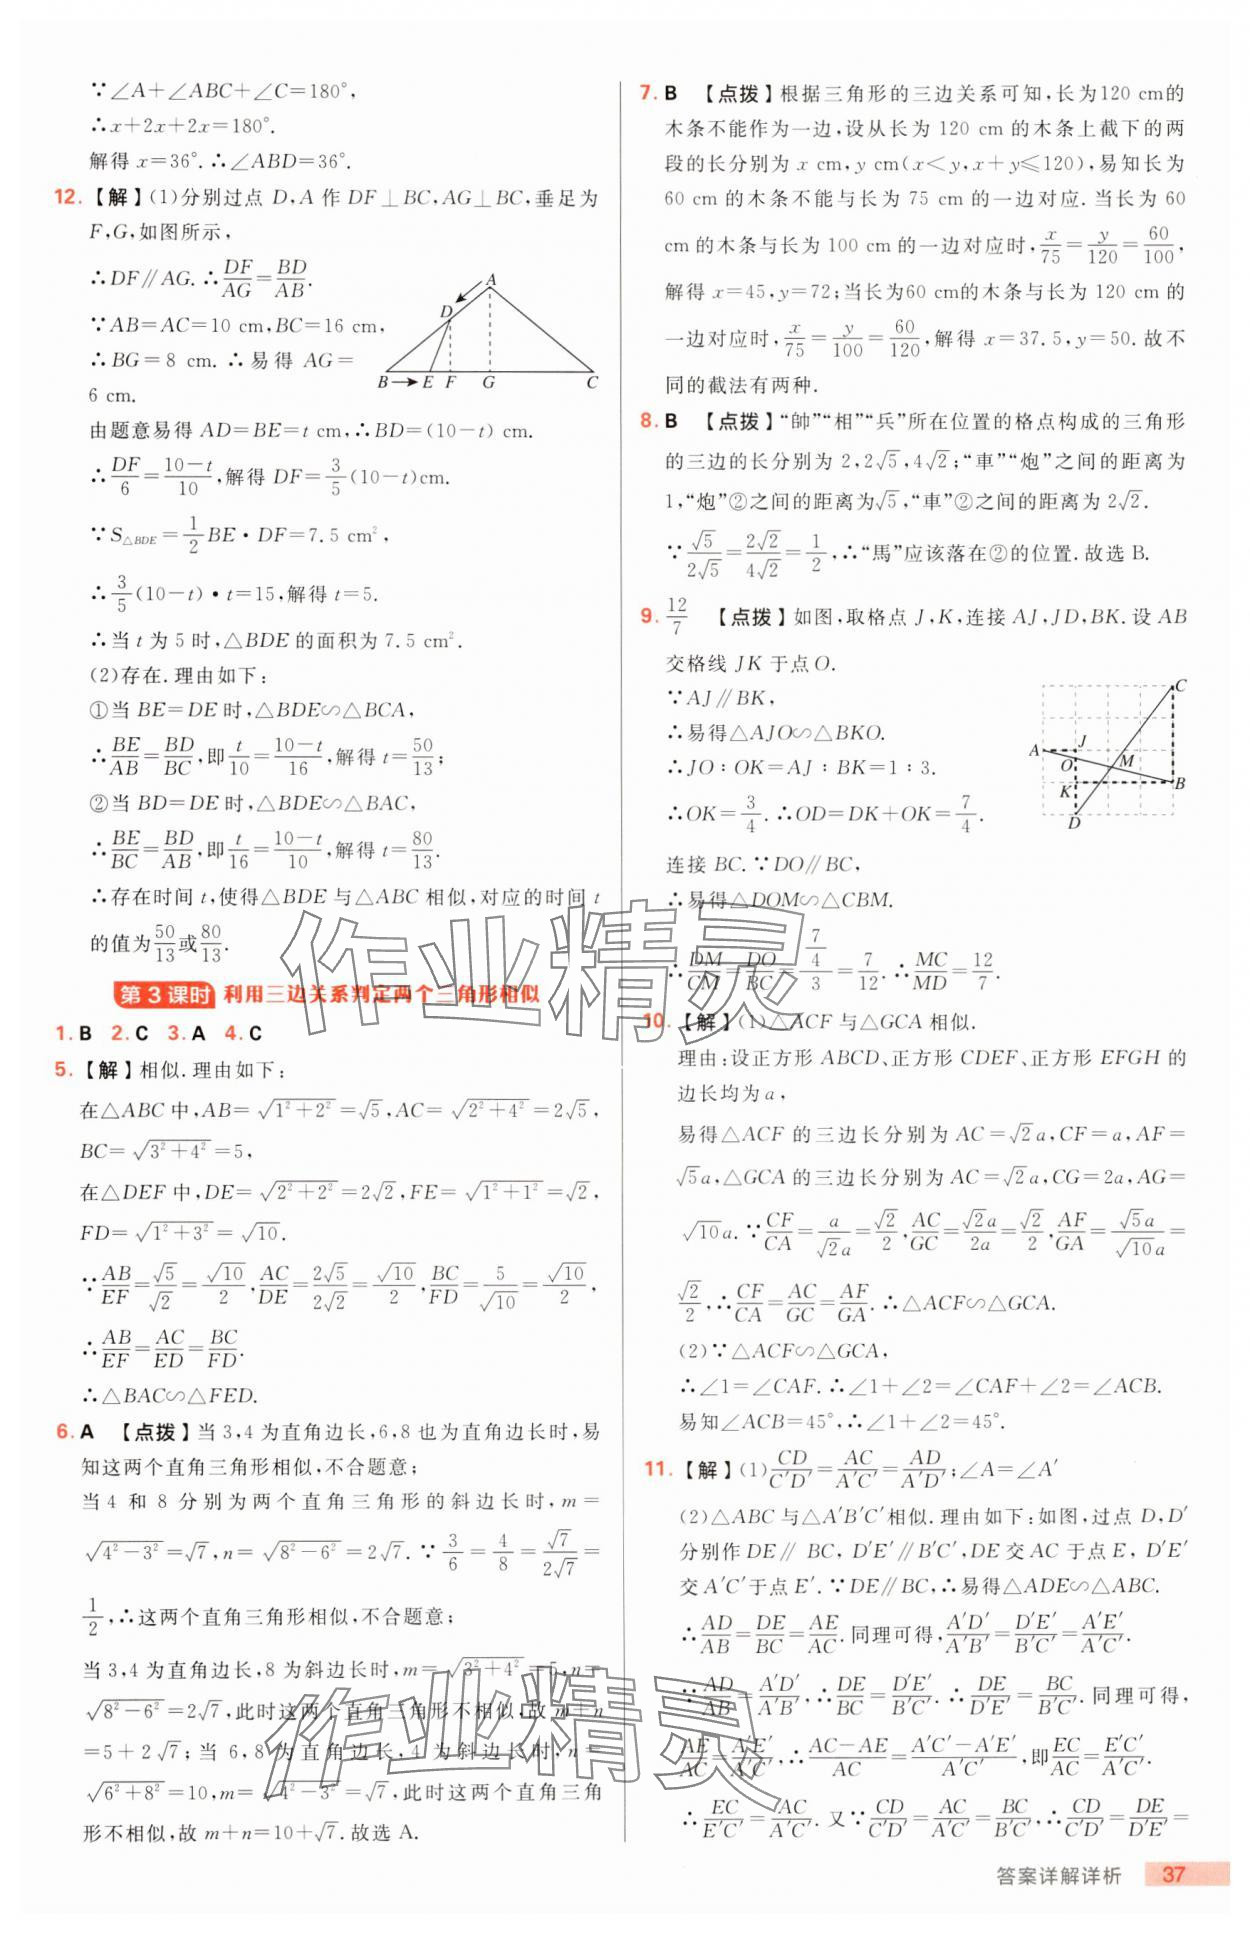 ∵∠A+∠ABC+∠C=180°,
∴x+2x+2x=180°.
解得 x=36°.∴∠ABD=36°.
12.【解】(1)分别过点 D,A 作 DF⊥BC,AG⊥BC,垂足为
F,G,如图所示,
∴DF∥AG.∴DF/AG=BD/AB.
∵AB=AC=10 cm,BC=16 cm,
∴BG=8 cm.∴易得 AG=
6 cm.
A
D
B E F G C
由题意易得 AD=BE=t cm,∴BD=(10-t) cm.
∴DF/6=(10-t)/10,解得 DF=3/5(10-t)cm.
∵S△BDE=1/2BE·DF=7.5 cm²,
∴3/5(10-t)·t=15,解得 t=5.
∴当 t 为 5 时,△BDE 的面积为 7.5 cm².
(2)存在.理由如下:
①当 BE=DE 时,△BDE∽△BCA,
∴BE/AB=BD/BC,即t/10=(10-t)/16,解得 t=50/13;
②当 BD=DE 时,△BDE∽△BAC,
∴BE/BC=BD/AB,即t/16=(10-t)/10,解得 t=80/13.
∴存在时间 t,使得△BDE 与△ABC 相似,对应的时间 t
的值为50/13或80/13.
第 3 课时 利用三边关系判定两个三角形相似
1. B 2. C 3. A 4. C
5.【解】相似.理由如下:
在△ABC 中,AB=√(1²+2²)=√5,AC=√(2²+4²)=2√5,
BC=√(3²+4²)=5,
在△DEF 中,DE=√(2²+2²)=2√2,FE=√(1²+1²)=√2,
FD=√(1²+3²)=√10.
∵AB/EF=√5/√2=√10/2,AC/DE=2√5/2√2=√10/2,BC/FD=5/√10=√10/2,
∴AB/EF=AC/ED=BC/FD.
∴△BAC∽△FED.
6. A 【点拨】当 3,4 为直角边长,6,8 也为直角边长时,易
知这两个直角三角形相似,不合题意;
当 4 和 8 分别为两个直角三角形的斜边长时,m=
√(4²-3²)=√7,n=√(8²-6²)=2√7.∵3/6=4/8=√7/2√7=
1/2,∴这两个直角三角形相似,不合题意;
当 3,4 为直角边长,8 为斜边长时,m=√(3²+4²)=5,n=
√(8²-6²)=2√7,此时这两个直角三角形不相似,故 m+n
=5+2√7;当 6,8 为直角边长,4 为斜边长时,n=
√(6²+8²)=10,m=√(4²-3²)=√7,此时这两个直角三角
形不相似,故 m+n=10+√7.故选 A.
7. B 【点拨】根据三角形的三边关系可知,长为120 cm的
木条不能作为一边,设从长为 120 cm 的木条上截下的两
段的长分别为 x cm,y cm(x<y,x+y≤120),易知长为
60 cm 的木条不能与长为 75 cm 的一边对应.当长为 60
cm 的木条与长为 100 cm 的一边对应时,x/75=y/120=60/100,
解得 x=45,y=72;当长为60 cm的木条与长为 120 cm 的
一边对应时,x/75=y/100=60/120,解得 x=37.5,y=50.故不
同的截法有两种.
8. B 【点拨】“帥”“相”“兵”所在位置的格点构成的三角形
的三边的长分别为 2,2√5,4√2;“車”“炮”之间的距离为
1,“炮”②之间的距离为√5,“車”②之间的距离为 2√2.
∵√5/2√5=2√2/4√2=1/2,∴“馬”应该落在②的位置.故选 B.
9. 12/7 【点拨】如图,取格点 J,K,连接 AJ,JD,BK.设 AB
交格线 JK 于点 O.
∵AJ∥BK,
∴易得△AJO∽△BKO.
∴JO∶OK=AJ∶BK=1∶3.
∴OK=3/4.∴OD=DK+OK=7/4.
C
A J
O M
K B
D
连接 BC.∵DO∥BC,
∴易得△DOM∽△CBM.
∴DM/CM=DO/BC=(7/4)/3=7/12.∴MC/MD=12/7.
10.【解】(1)△ACF 与△GCA 相似.
理由:设正方形 ABCD、正方形 CDEF、正方形 EFGH 的
边长均为 a,
易得△ACF 的三边长分别为 AC=√2a,CF=a,AF=
√5a,△GCA 的三边长分别为 AC=√2a,CG=2a,AG=
√10a.∵CF/CA=a/√2a=√2/2,AC/GC=√2a/2a=√2/2,AF/GA=√5a/√10a=
√2/2,∴CF/CA=AC/GC=AF/GA.∴△ACF∽△GCA.
(2)∵△ACF∽△GCA,
∴∠1=∠CAF.∴∠1+∠2=∠CAF+∠2=∠ACB.
易知∠ACB=45°,∴∠1+∠2=45°.
11.【解】(1)CD/C'D'=AC/A'C'=AD/A'D';∠A=∠A'
(2)△ABC 与△A'B'C'相似.理由如下:如图,过点 D,D'
分别作 DE∥BC,D'E'∥B'C',DE 交 AC 于点 E,D'E'
交 A'C'于点 E'.∵DE∥BC,∴易得△ADE∽△ABC.
∴AD/AB=DE/BC=AE/AC.同理可得,A'D'/A'B'=D'E'/B'C'=A'E'/A'C'.
∵AD/AB=A'D'/A'B',∴DE/BC=D'E'/B'C'.∴DE/D'E'=BC/B'C'.同理可得,
AE/AC=A'E'/A'C',∴(AC-AE)/AC=(A'C'-A'E')/A'C',即EC/AC=E'C'/A'C'.
∴EC/E'C'=AC/A'C'.又∵CD/C'D'=AC/A'C'=BC/B'C',∴CD/C'D'=DE/D'E'=
作业精灵
作业精灵
答案详解详析 37